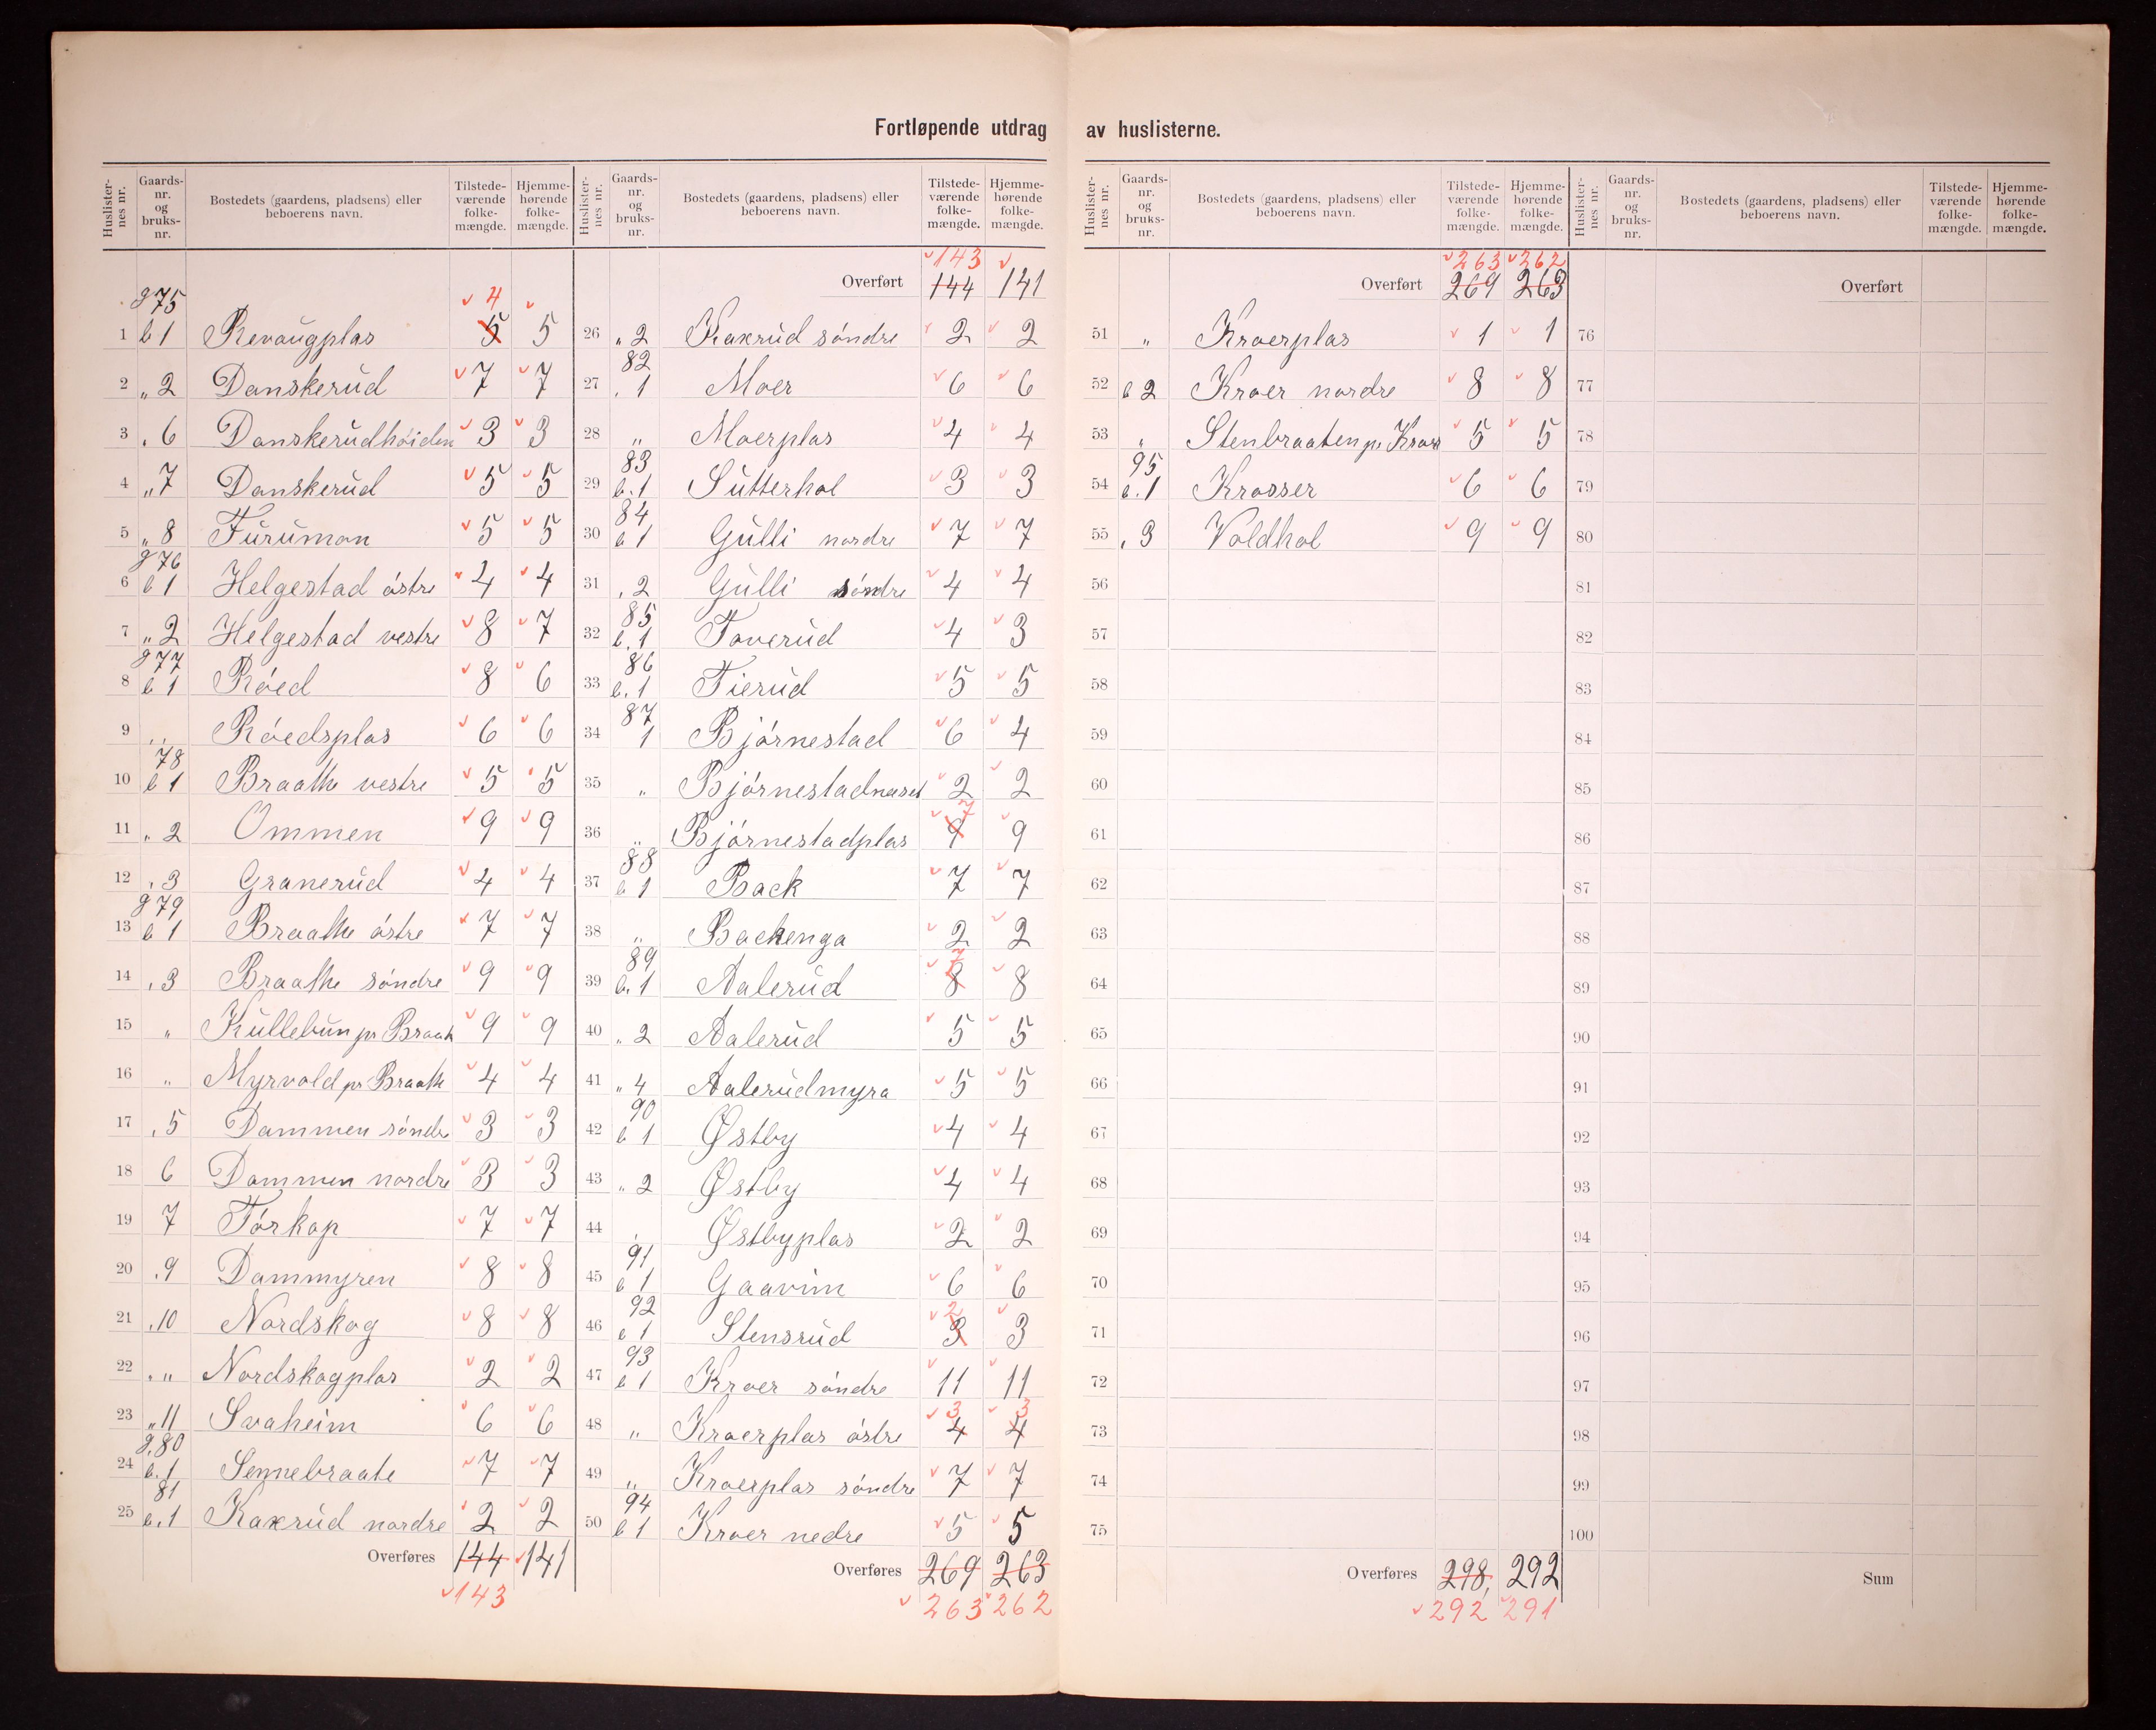 Fortløpende utdrag av huslisterne.
Huslisternes nr. Gaardsnr. og bruksnr. Bostedets (gaardens, pladsens) eller beboerens navn. Tilstedeværende folkemængde. Hjemmehørende folkemængde.
g 75 4
1 b 1 Revaugplas 5 5
2 „ 2 Danskerud 7 7
3 „ 6 Danskerudhöiden 3 3
4 „ 7 Danskerud 5 5
5 „ 8 Furumon 5 5
g 76
6 b 1 Helgestad östre 4 4
7 „ 2 Helgestad vestre 8 7
g 77
8 b 1 Röed 8 6
9 „ Röedsplas 6 6
78
10 b 1 Braathe vestre 5 5
11 „ 2 Ommen 9 9
12 „ 3 Granerud 4 4
g 79
13 b 1 Braathe östre 7 7
14 „ 3 Braathe söndre 9 9
15 „ Kullebun pr Braath 9 9
16 „ Myrvold pr Braathe 4 4
17 „ 5 Dammen söndre 3 3
18 6 Dammen nordre 3 3
19 7 Törkop 7 7
20 „ 9 Dammyren 8 8
21 „ 10 Nordskog 8 8
22 „ „ Nordskogplas 2 2
23 „ 11 Svaheim 6 6
g. 80
24 b. 1 Sennebraate 7 7
81
25 b. 1 Kaxrud nordre 2 2
Overføres 144 141
143
Huslisternes nr. Gaardsnr. og bruksnr. Bostedets (gaardens, pladsens) eller beboerens navn. Tilstedeværende folkemængde. Hjemmehørende folkemængde.
143
Overført 144 141
26 „ 2 Kaxrud söndre 2 2
82
27 „ 1 Moer 6 6
28 „ Moerplas 4 4
83
29 b. 1 Sutterhol 3 3
84
30 b 1 Gulli nordre 7 7
31 „ 2 Gulli söndre 4 4
85
32 b. 1 Toverud 4 3
86
33 b. 1 Tierud 5 5
87
34 1 Björnestad 6 4
35 „ Björnestadneset 2 2
7
36 „ Björnestadplas 9 9
88
37 b 1 Back 7 7
38 „ Backenga 2 2
89 7
39 b. 1 Aalerud 8 8
40 „ 2 Aalerud 5 5
41 „ 4 Aalerudmyra 5 5
90
42 b 1 Østby 4 4
43 „ 2 Østby 4 4
44 „ Østbyplas 2 2
91
45 b 1 Gaarim 6 6
92 2
46 b 1 Stensrud 3 3
93
47 b 1 Kroer söndre 11 11
3 3
48 „ Kroerplas östre 4 4
49 „ Kroerplas söndre 7 7
94
50 b 1 Kroer nedre 5 5
Overføres 269 263
263 262
Huslisternes nr. Gaardsnr. og bruksnr. Bostedets (gaardens, pladsens) eller beboerens navn. Tilstedeværende folkemængde. Hjemmehørende folkemængde.
263 262
Overført 269 263
51 „ Kroerplas 1 1
52 b 2 Kroer nordre 8 8
53 „ Stenbraaten pr Kroer 5 5
95
54 b. 1 Krosser 6 6
55 „ 3 Voldhol 9 9
56
57
58
59
60
61
62
63
64
65
66
67
68
69
70
71
72
73
74
75
Overføres 298 292
292 291
Huslisternes nr. Gaardsnr. og bruksnr. Bostedets (gaardens, pladsens) eller beboerens navn. Tilstedeværende folkemængde. Hjemmehørende folkemængde.
Overført
76
77
78
79
80
81
82
83
84
85
86
87
88
89
90
91
92
93
94
95
96
97
98
99
100
Sum